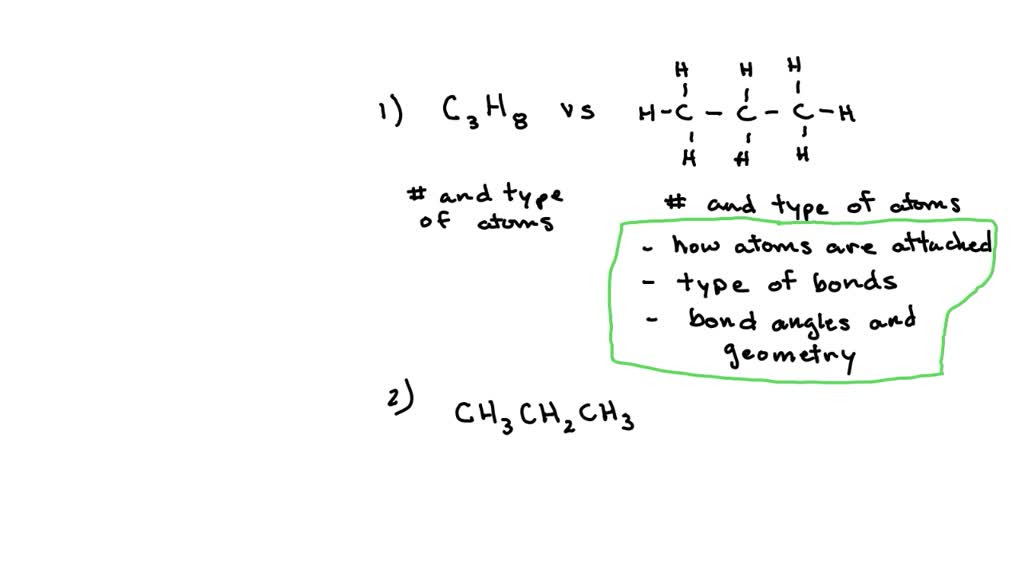 H H H
1) C₃H₈ vs H-C-C-C-H
H H H
# and type
of atoms
# and type of atoms
- how atoms are attached
- type of bonds
- bond angles and
geometry
2) CH₃CH₂CH₃